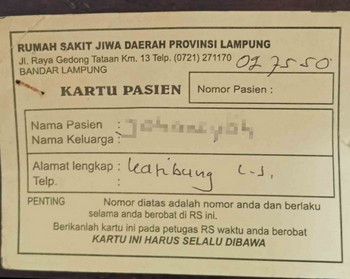 RUMAH SAKIT JIWA DAERAH PROVINSI LAMPUNG
Jl. Raya Gedong Tataan Km. 13 Telp. (0721) 271170
BANDAR LAMPUNG
027550
KARTU PASIEN
Nomor Pasien :
Nama Pasien :
Nama Keluarga :
Alamat lengkap : Katibung L-S.
Telp. :
PENTING Nomor diatas adalah nomor anda dan berlaku
selama anda berobat di RS ini.
Berikanlah kartu ini pada petugas RS waktu anda berobat
KARTU INI HARUS SELALU DIBAWA